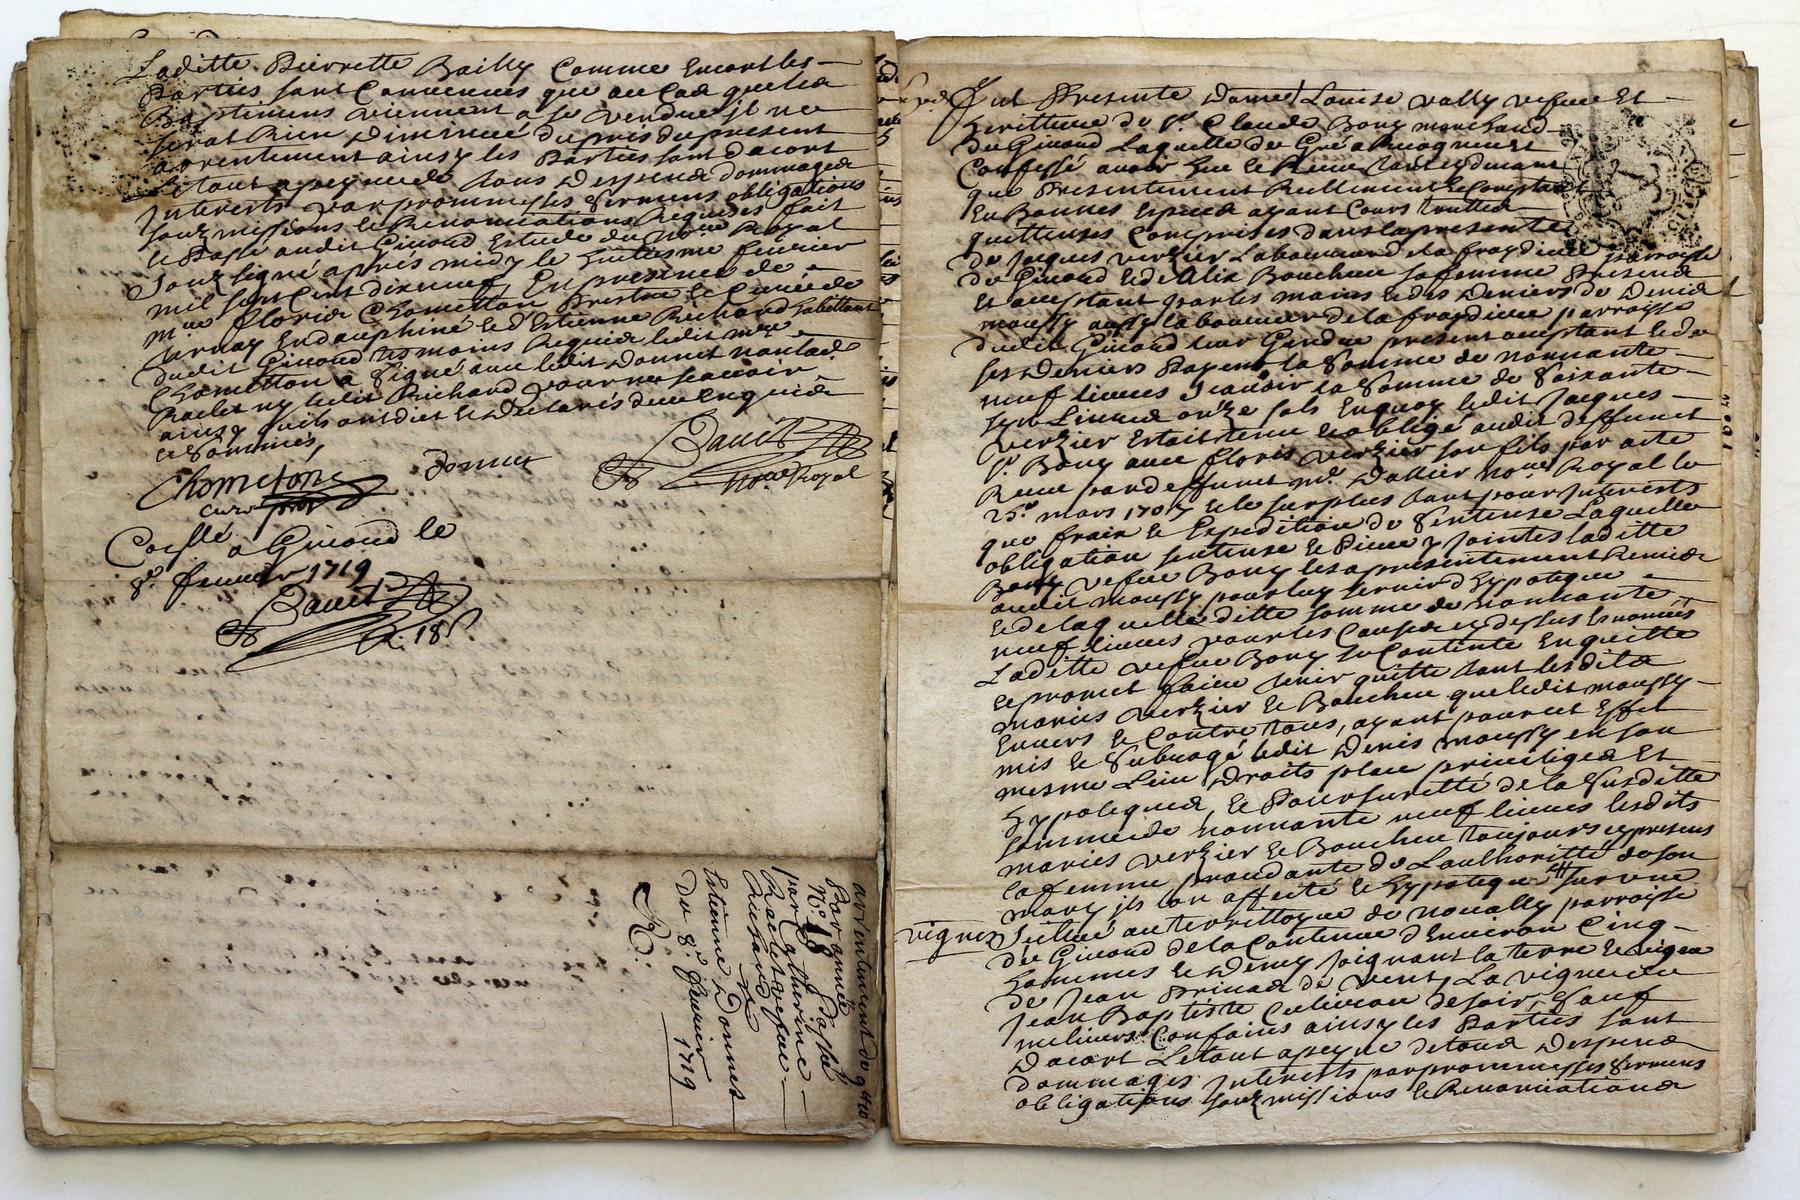 Laditte Pierrette Bailly Comme Encor les
Parties sont Convenues que au Cas que les
Bastimens viennent a se vendre il ne
serat Rien Diminué du pris du present
arrentement ainsy les Parties sont dacort
Le tout a peyne de tous Despens dommages
Interests par prommesses sermens obligations
souzmissions et Renonciations Requises fait
et Passé audit Givord Estude du Nore Royal
souzsigné apprés midy le huitiesme feuvrier
mil sept Cent dixneuf En presence de
mre Chometton Prestre et Curé de
Ternay En dauphiné et d'Estienne Richard habittant
dudit Givord tesmoins Requis ledit mre
Chometton a signé avec ledit Donnet non lad.
Raclet ny ledit Richard pour ne scavoir
ainsy quils ont dict et declarés de ce Enquis
et Sommés,
Chometton
curé
Donnet
Bauet
Nore Royal
Coñllé a Givord le
8e. feuvrier 1719
Bauet
R. 18 s.
arrentement de
par année passé
No. 18
par Catherine
Raclet vefve
Richard
a
Estienne Donnet
Du 8e. feuvrier
1719
R.
fut Presente dame Louise vally vefve Et
heritiere de Sr. Claude Bouy marchand
du Givord Laquelle de Gré a Recogneut
Confessé avoir heu et Receu tant cydevant
que Presentement Reellement et Comptant
En Bonnes Especes ayant Cours touttes
quittenses Comprises dans la presente
de Jaques verzier Laboureur de la fraydiere parroisse
de Givord et de Alix Boucheu sa femme Presens
et acceptant par les mains et des Deniers de Denis
moussy aussy laboureur de la fraydiere parroisse
dudit Givord leur Gendre present acceptant et de
ses Deniers Payent la Somme de nonnante
neuf livres scavoir la Somme de Soixante
sept Livres onze sols Enquoy ledit Jacques
verzier Estait tenu et obligé audit deffunct
Sr. Bouy avec floris verzier son fils par acte
Receu par deffunct Me. Dallier Nore Royal le
25e. mars 1707 et le surplus tant pour Interests
que frais et Expedition de Sentense Laquelle
obligation sentense et Pieces y Jointes laditte
Bouy vefve Bouy les a presentement Remises
audit moussy pour luy servir d'hypoteque
et de laquelleditte somme de nonnante
neuf livres pour les Causes cy dessus Enoncées
Laditte vefve Bouy se Contente En quitte
et promet faire tenir quitte tant lesdits
maries verzier et Boucheu que ledit moussy
Envers et Contre tous, ayant pour cet Effet
mis et Subrogé ledit Denis moussy en son
mesme Lieu Droits place privileges Et
hypoteques, et Pour surette de la Susditte
somme de nonnante neuf livres lesdits
maries verzier et Boucheu toujours cy presens
la femme procedante de Lauthoritté de son
mary ils on affecté et hypotequé sur une
vignes
Scitué au territtoyre de novally parroisse
du Givord de la Contenue d'Environ Cinq
hommes et Demy joignant la terre et vigne
de Jean Privas de vent, La vigne de
Jean Baptiste Culivan de soir, Sauf
milieurs Confains ainsy les Parties sont
Dacort Le tout a peyne de tous Despens
dommages Interests par prommesses Sermens
obligations souzmissions et Renonciations